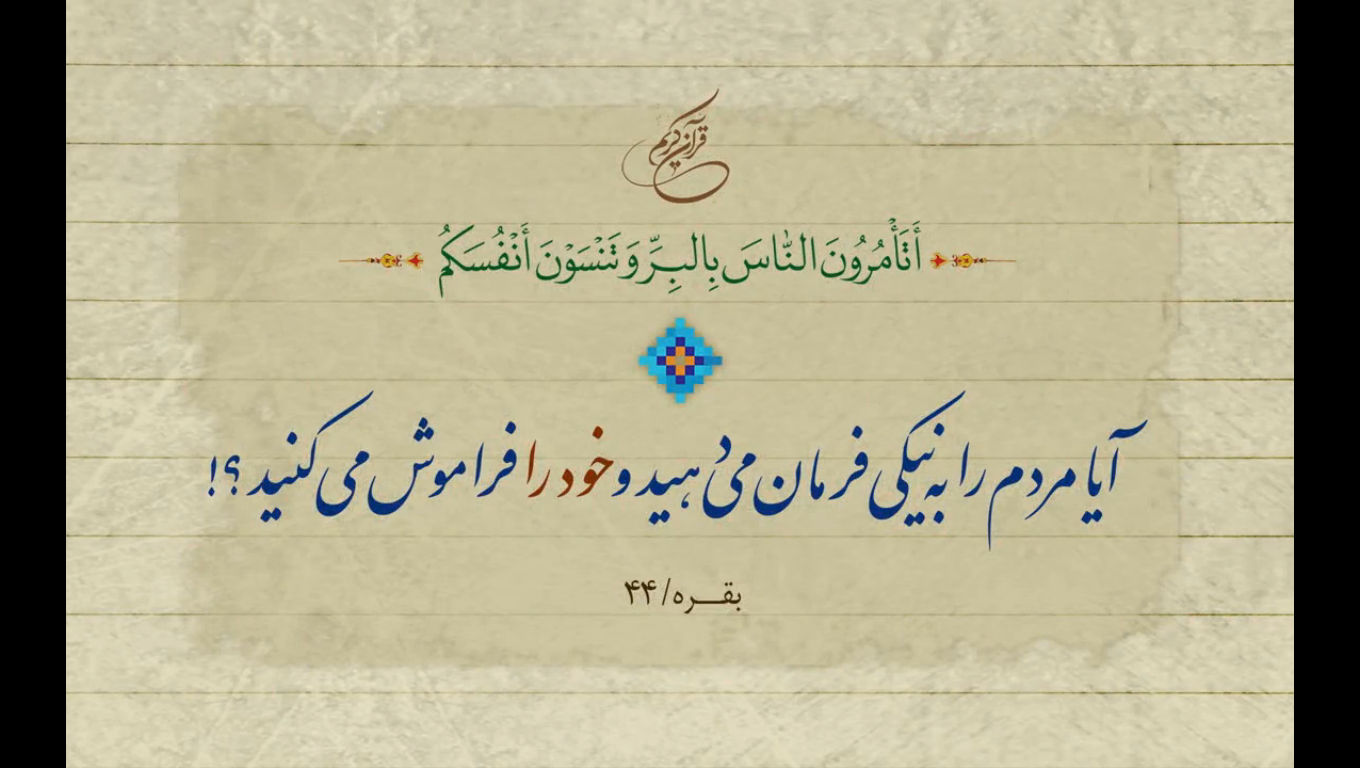 قرآن کریم
أَتَأْمُرُونَ النَّاسَ بِالبِرِّ وَتَنْسَوْنَ أَنْفُسَكُمْ
آیا مردم را به نیکی فرمان می‌دهید و خود را فراموش می‌کنید؟!
بقره/۴۴